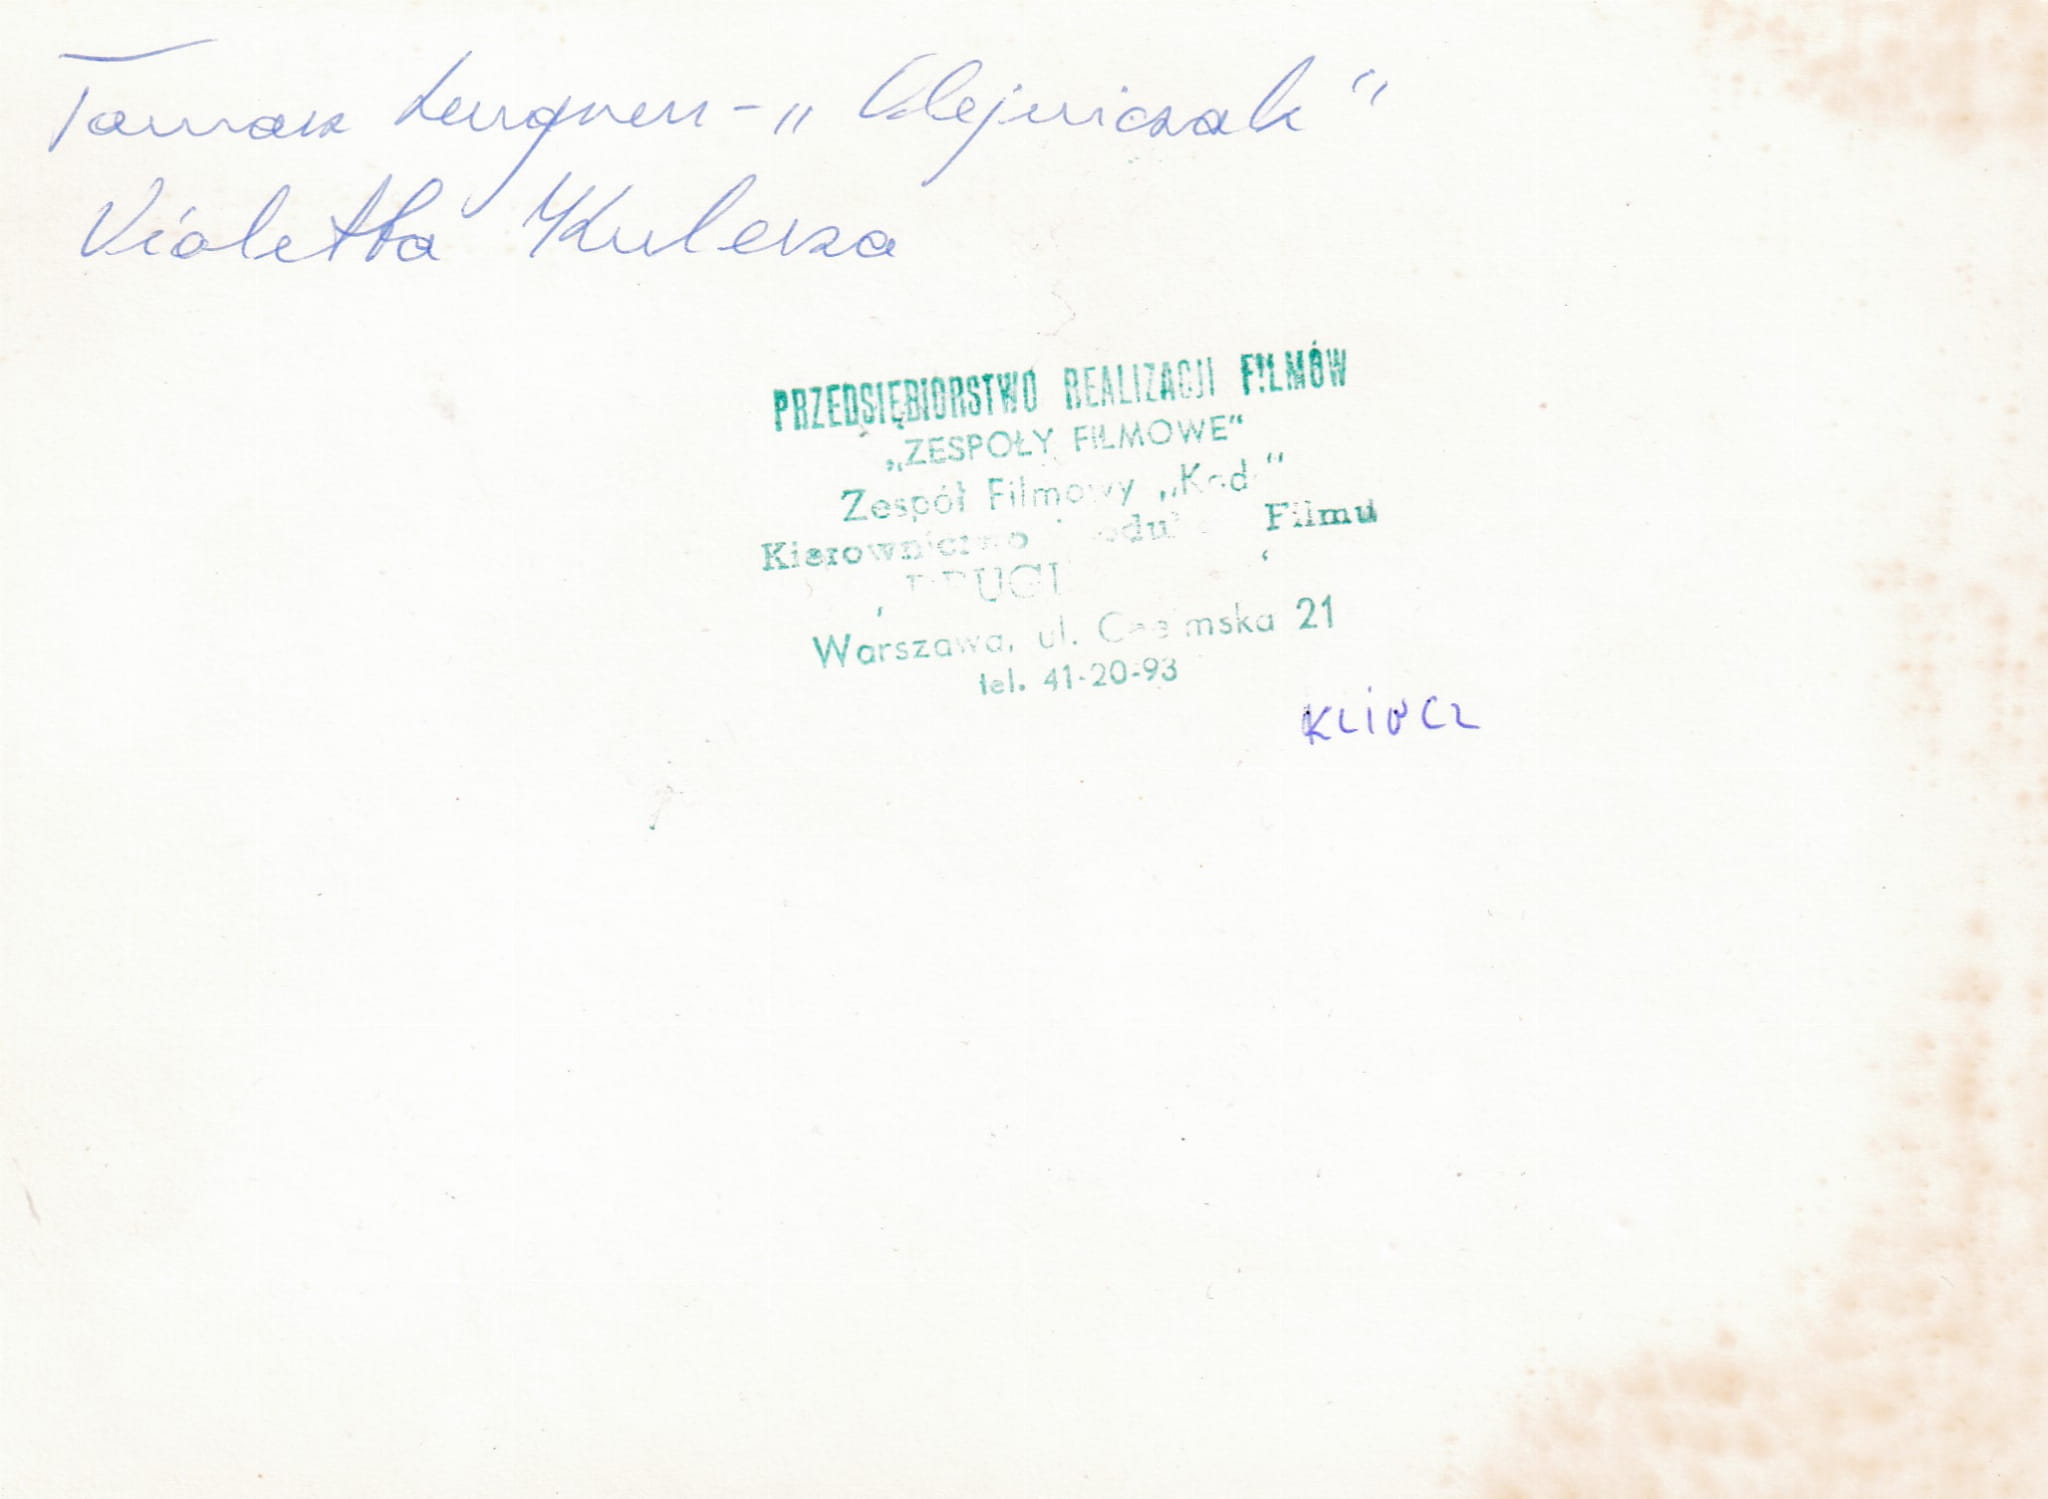 Tomasz Lengren - „Olejniczak”
Violetta Kulesza
PRZEDSIĘBIORSTWO REALIZACJI FILMÓW
„ZESPOŁY FILMOWE”
Zespół Filmowy
Kierownictwo Filmu
Warszawa, ul. 21
tel. 41-20-93
KLINCZ